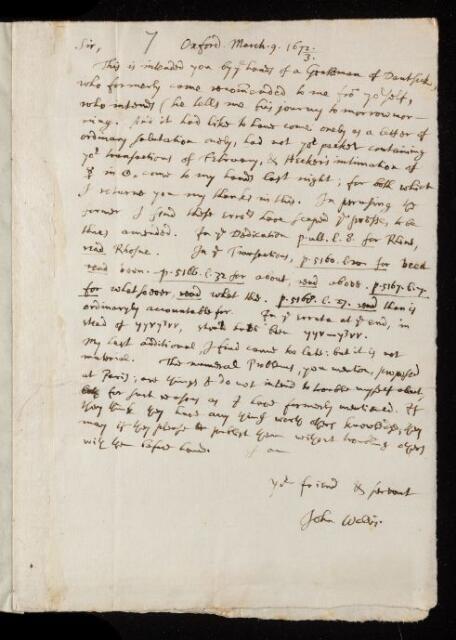 7
Sir, Oxford. March. 9. 167 2/3.
This is intended you by ye hands of a Gentleman of Dantsick,
who formerly came recommended to me from yor self,
who intends (he tells me) his journey to morrow mor-
ning. And it had like to have come onely as a letter of
ordinary salutation onely, had not yor packet containing
yor transactions of February, & Heckers intimation of
☿ in ☉, come to my hands last night; for both which
I returne you my thanks in this. In perusing ye
former I find these errors have scaped ye presse, to be
thus amended. In ye Dedication p. ult. l. 8. for Rhine,
read Rhosne. In ye Transactions, p. 5160. for been
read born. p. 5166. l. 32 for about, read above. p. 5167. l.
for whatsoever, read what the. p. 5168. l. 27. read than is
ordinarily accountable for. In ye errata at ye end, in
stead of should have been
My last additional, I find came too late: but it is not
material. The numeral Problems, you mention, proposed
at Paris; are things I do not intend to trouble myself about,
for such reasons as I have formerly mentioned. If
they think they have any thing worth others knowledge, they
may if they please publish them without troubling others
with them before hand. I am
yor friend & servant
John Wallis.